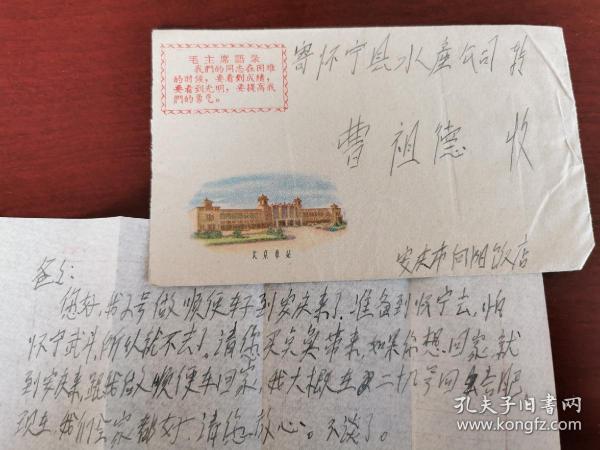 毛主席語录
我們的同志在困难
的时候，要看到成績，
要看到光明，要提高我
們的勇气。
寄怀宁县水產公司转
曹祖德 收
北京車站
安庆市向阳饭店
爸爸：
您好，我2号做顺便车子到安庆来了，准备到怀宁去，怕
怀宁武斗，所以就不去了。请您买点鱼带来，如果你想回家，就
到安庆来，跟我做顺便车回家，我大概在二十九号回合肥
现在，我们全家都好，请您放心。不谈了。
孔夫子旧书网
www.kongfz.com